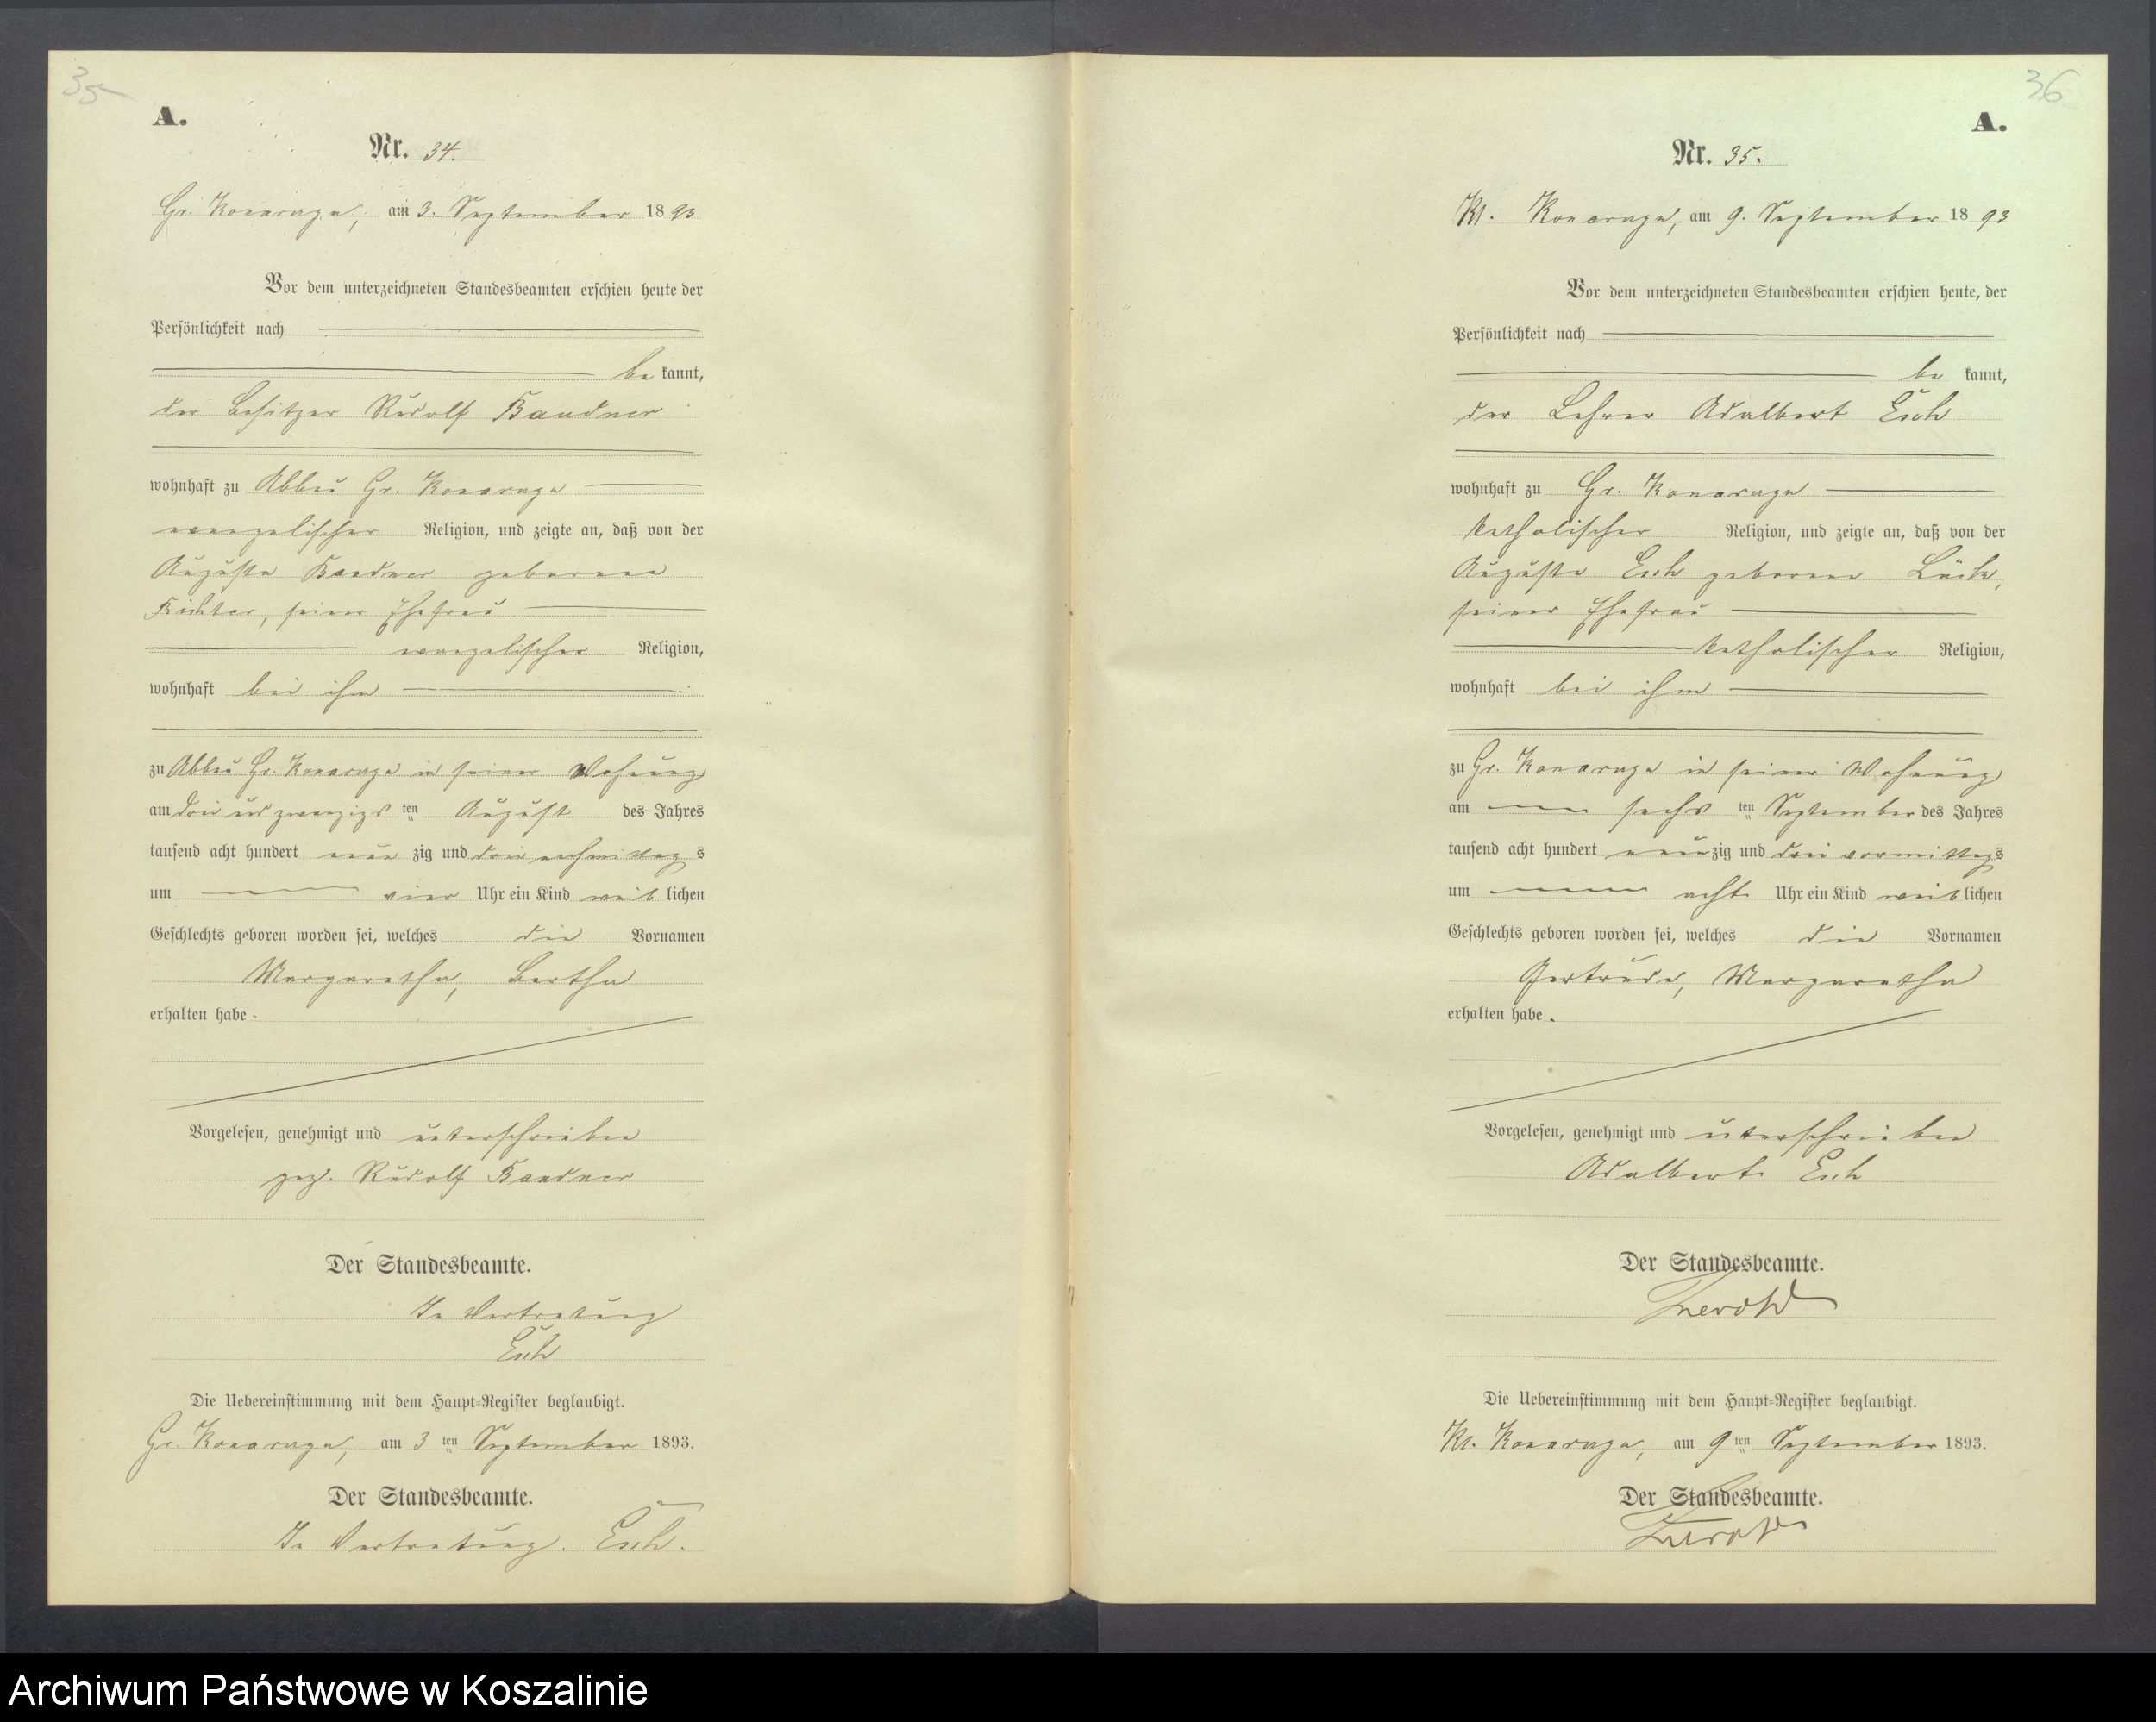 35
A.
Nr. 34.
Gr. Konarzyn, am 3. September 1893
Vor dem unterzeichneten Standesbeamten erschien heute der
Persönlichkeit nach
be kannt,
der Besitzer Rudolf
wohnhaft zu Abbau Gr. Konarzyn
evangelischer Religion, und zeigte an, daß von der
Auguste geborene
Richter, seiner Ehefrau
evangelischer Religion,
wohnhaft bei ihm
zu Abbau Gr. Konarzyn in seiner Wohnung
am drei und zwanzigsten August des Jahres
tausend acht hundert neun zig und drei nachmittags
um vier Uhr ein Kind weib lichen
Geschlechts geboren worden sei, welches die Vornamen
Margaretha, Bertha
erhalten habe.
Vorgelesen, genehmigt und unterschrieben
gez. Rudolf
Der Standesbeamte.
In Vertretung
Esch
Die Uebereinstimmung mit dem Haupt-Register beglaubigt.
Gr. Konarzyn, am 3 ten September 1893.
Der Standesbeamte.
In Vertretung. Esch.
36
A.
Nr. 35.
Kl. Konarzyn, am 9. September 1893
Vor dem unterzeichneten Standesbeamten erschien heute, der
Persönlichkeit nach
be kannt,
der Lehrer Adalbert Esch
wohnhaft zu Gr. Konarzyn
katholischer Religion, und zeigte an, daß von der
Auguste Esch geborene Lück,
seiner Ehefrau
katholischer Religion,
wohnhaft bei ihm
zu Gr. Konarzyn in seiner Wohnung
am sechsten September des Jahres
tausend acht hundert neunzig und drei vormittags
um acht Uhr ein Kind weiblichen
Geschlechts geboren worden sei, welches die Vornamen
Gertrude, Margaretha
erhalten habe.
Vorgelesen, genehmigt und unterschrieben
Adalbert Esch
Der Standesbeamte.
Die Uebereinstimmung mit dem Haupt-Register beglaubigt.
Kl. Konarzyn, am 9 ten September 1893.
Der Standesbeamte.
Archiwum Państwowe w Koszalinie